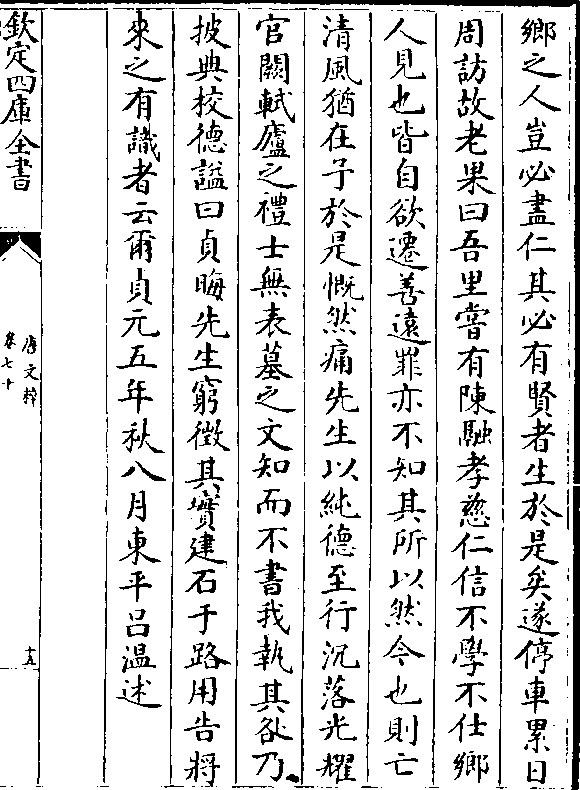 鄉之人豈必盡仁其必有賢者生於是矣遂停車累日
周訪故老果曰吾里嘗有陳融孝慈仁信不學不仕鄉
人見也皆自欲遷善遠罪亦不知其所以然今也則亡
清風猶在予於是慨然痛先生以純德至行沉落光耀
官闕軾廬之禮士無表墓之文知而不書我執其咎乃
披典校德謚曰貞晦先生窮徵其實建石于路用告將
來之有識者云爾貞元五年秋八月東平呂溫述
欽定四庫全書
唐文粹
卷七十
十五